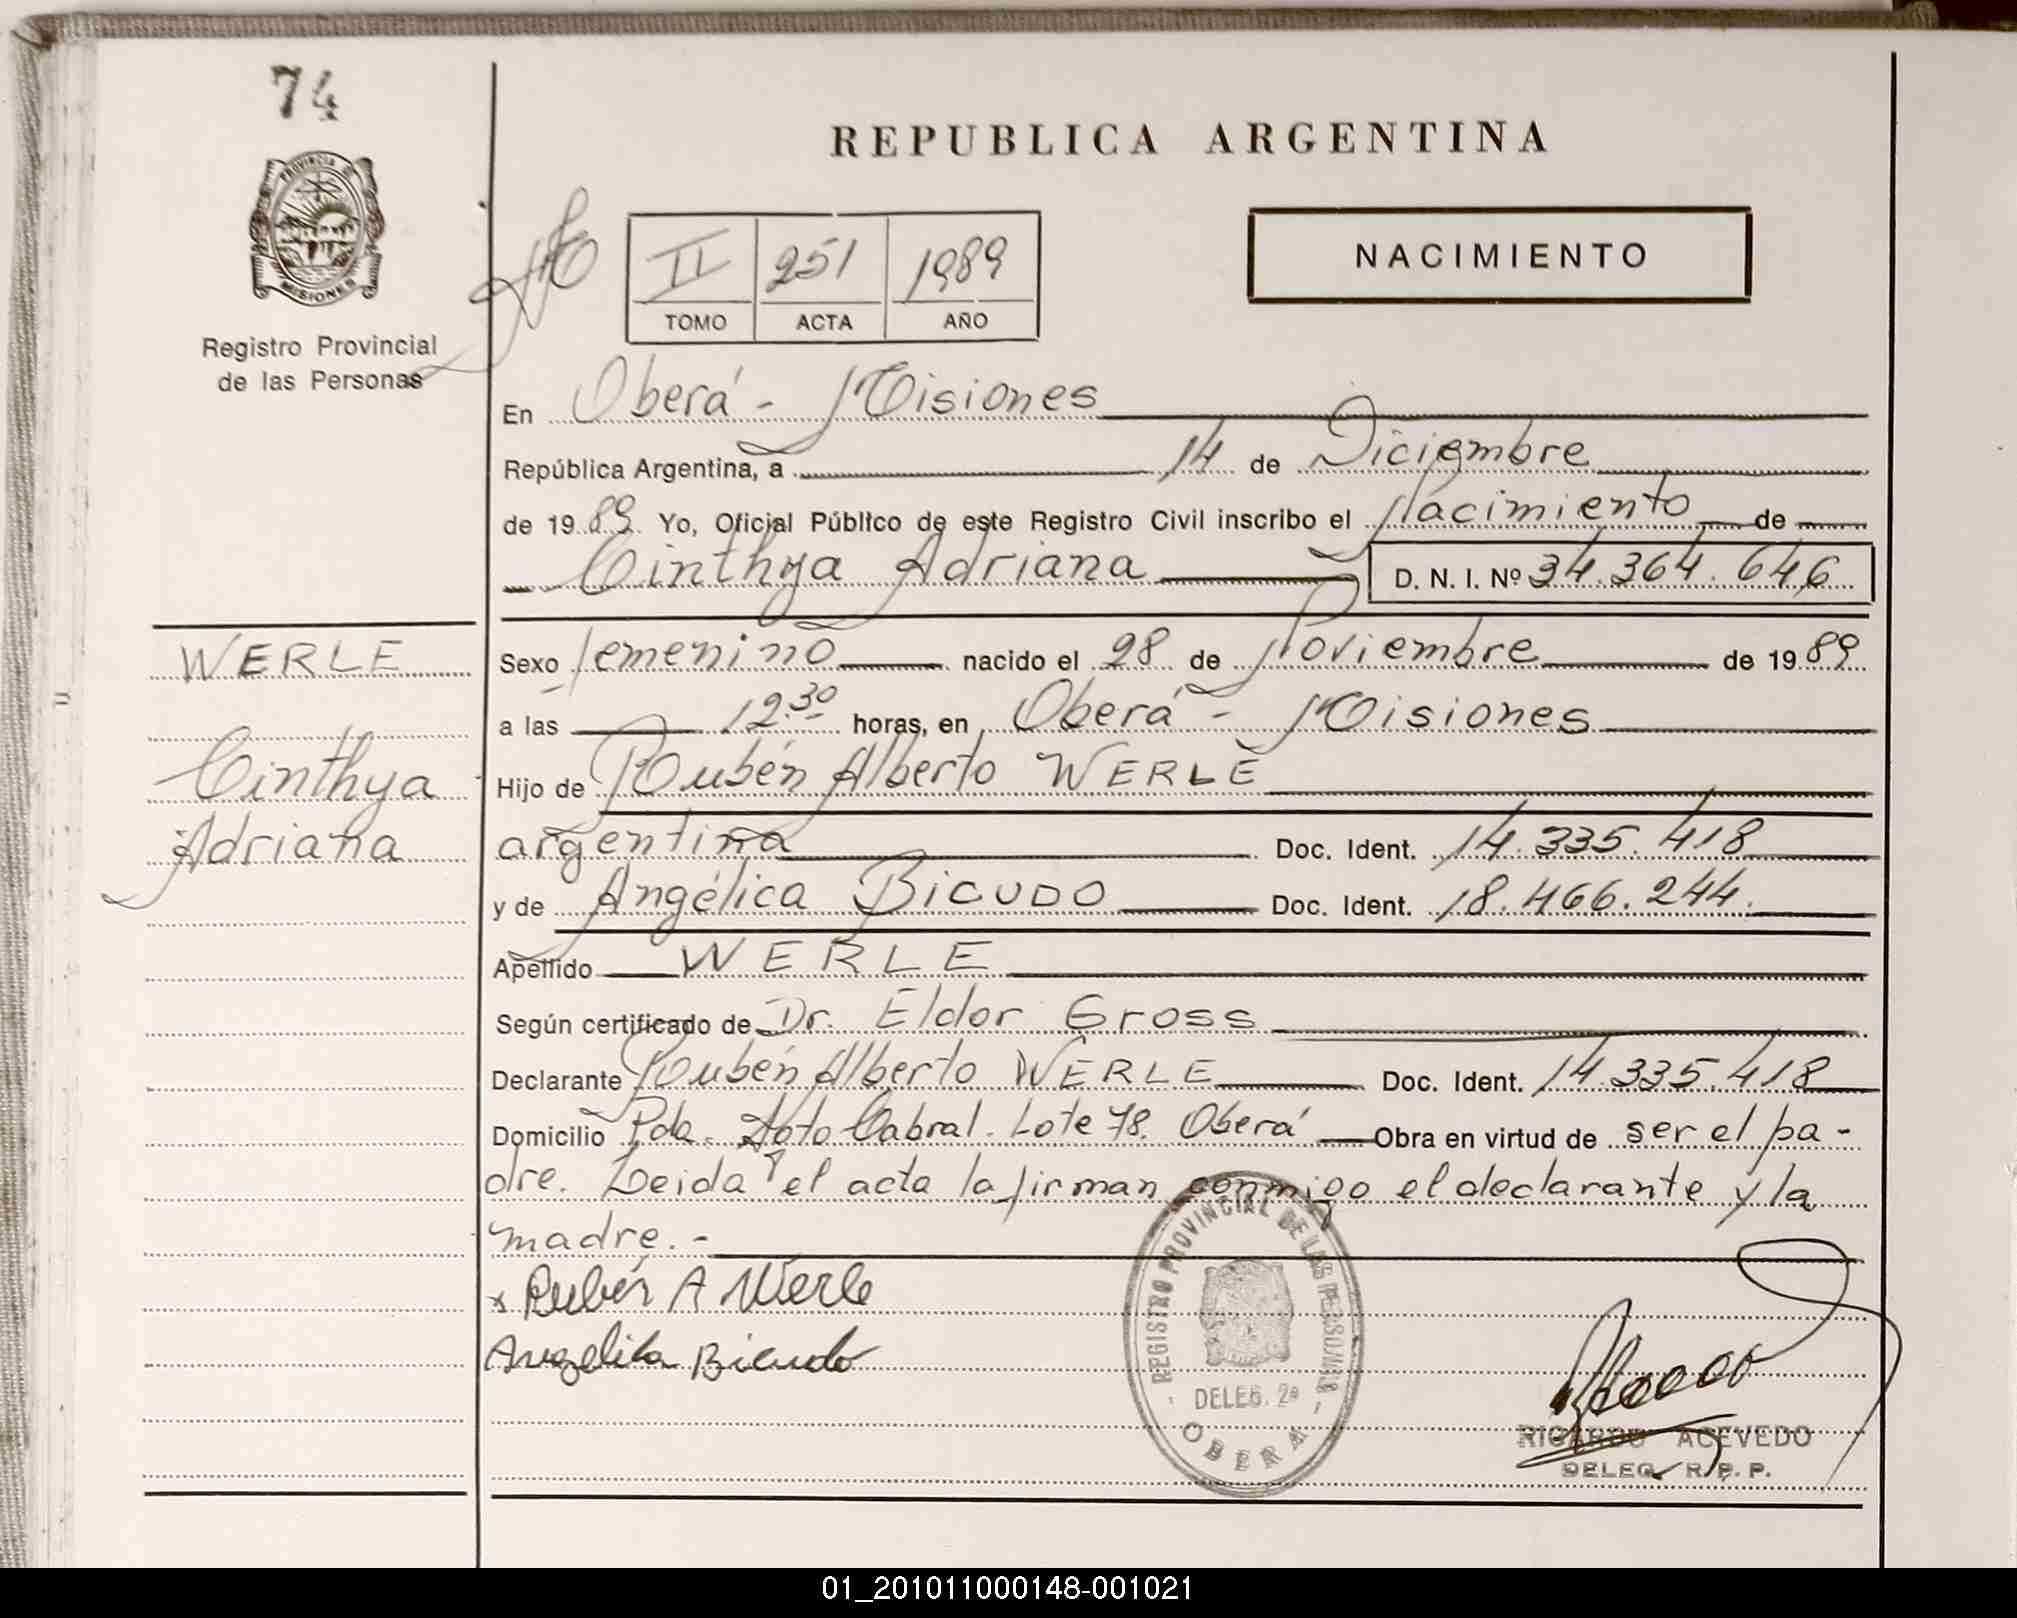 74
REPUBLICA ARGENTINA
PROVINCIA
MISIONES
Registro Provincial
de las Personas
II 251 1989
TOMO ACTA AÑO
NACIMIENTO
En Oberá - Misiones
República Argentina, a 14 de Diciembre
de 1989. Yo, Oficial Público de este Registro Civil inscribo el Nacimiento de
Cinthya Adriana D. N. I. Nº 34.364.646
WERLE
Cinthya
Adriana
Sexo femenino nacido el 28 de Noviembre de 1989
a las 12.30 horas, en Oberá - Misiones
Hijo de Rubén Alberto WERLE
argentina Doc. Ident. 14.335.418
y de Angélica BICUDO Doc. Ident. 18.466.244.
Apellido WERLE
Según certificado de Dr. Eldor Gross
Declarante Rubén Alberto WERLE Doc. Ident. 14.335.418
Domicilio Pda. Cabral. Lote 78. Oberá Obra en virtud de ser el pa-
dre. Leida el acta la firman conmigo el declarante y la
madre.-
x Rubén A Werle
Angelica Bicudo
REGISTRO PROVINCIAL DE LAS PERSONAS
- DELEG. 2ª -
OBERA
RICARDO ACEVEDO
DELEG. R. P. P.
01_201011000148-001021